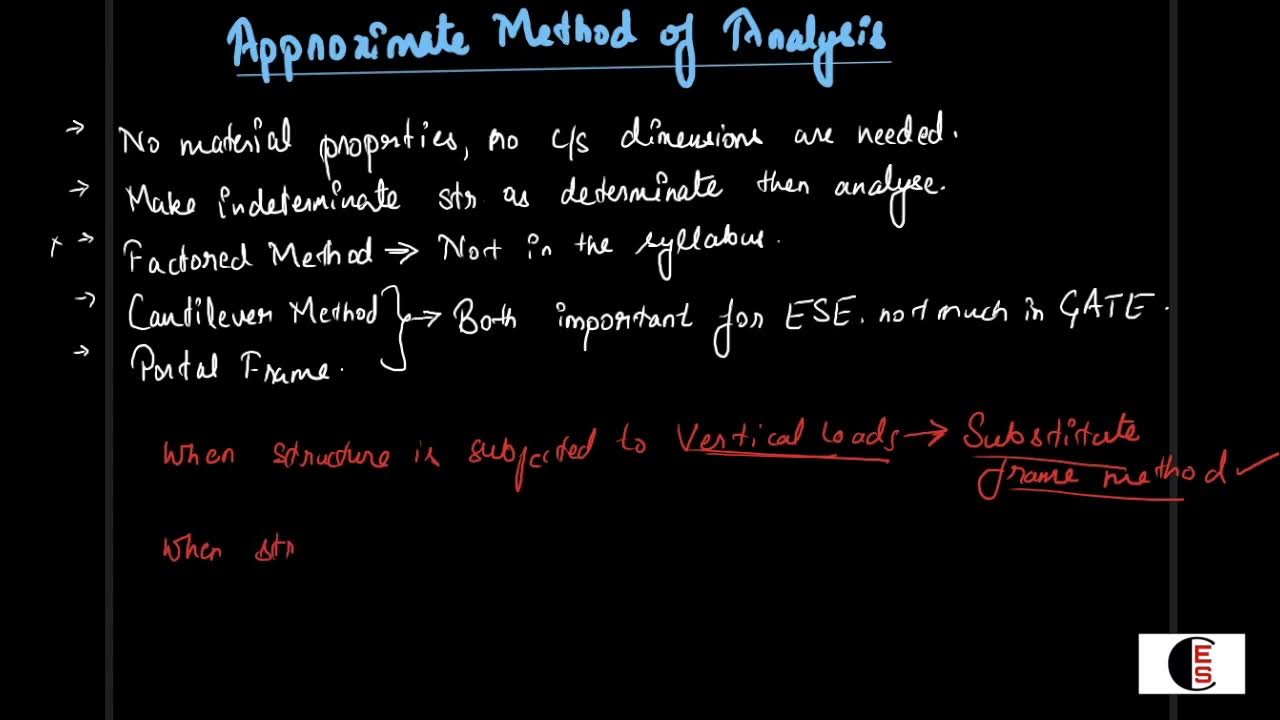 Approximate Method of Analysis
→ No material properties, no c/s dimensions are needed.
→ Make indeterminate str as determinate then analyse.
x → Factored Method → Not in the syllabus.
→ Cantilever Method } → Both important for ESE. not much in GATE.
→ Portal Frame.
When structure is subjected to Vertical loads → Substitute
frame method ✓
When str
ES